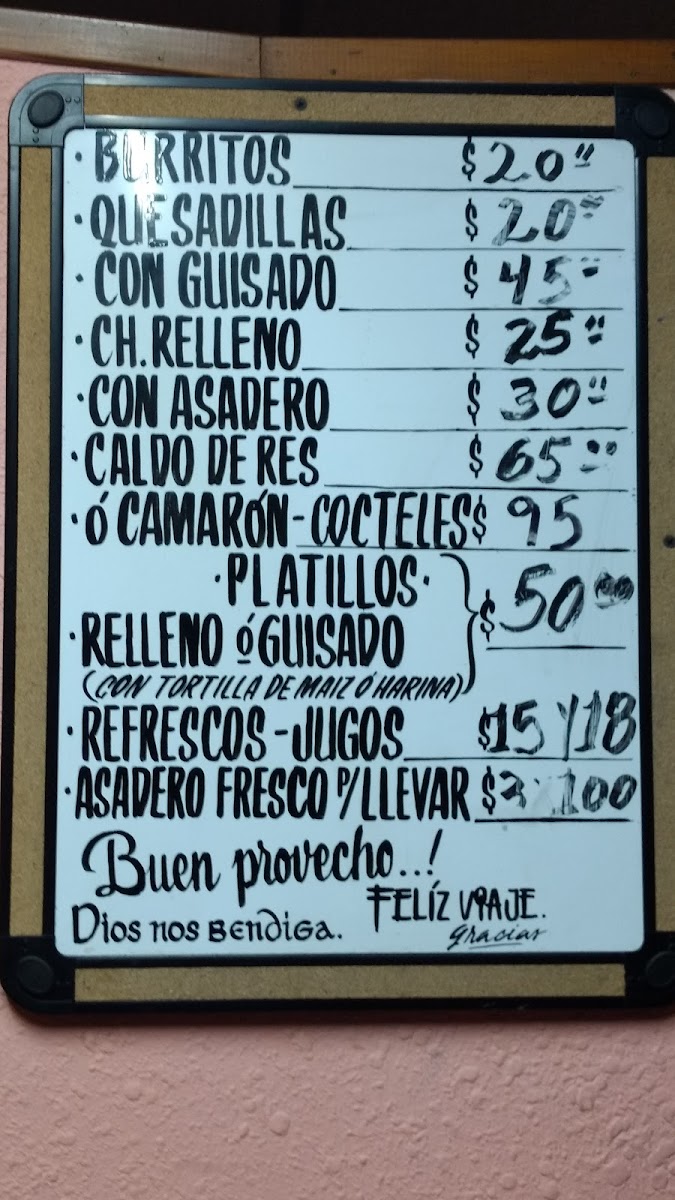 · BURRITOS $ 20"
· QUESADILLAS $ 20"
· CON GUISADO $ 45"
· CH. RELLENO $ 25"
· CON ASADERO $ 30"
· CALDO DE RES $ 65"
· Ó CAMARÓN - COCTELES $ 95
· PLATILLOS · $ 50.00
· RELLENO ó GUISADO
(CON TORTILLA DE MAIZ Ó HARINA)
· REFRESCOS - JUGOS $15 Y 18
· ASADERO FRESCO P/LLEVAR $ 100
Buen provecho..!
FELÍZ VIAJE.
Dios nos BENDIGA.
Gracias